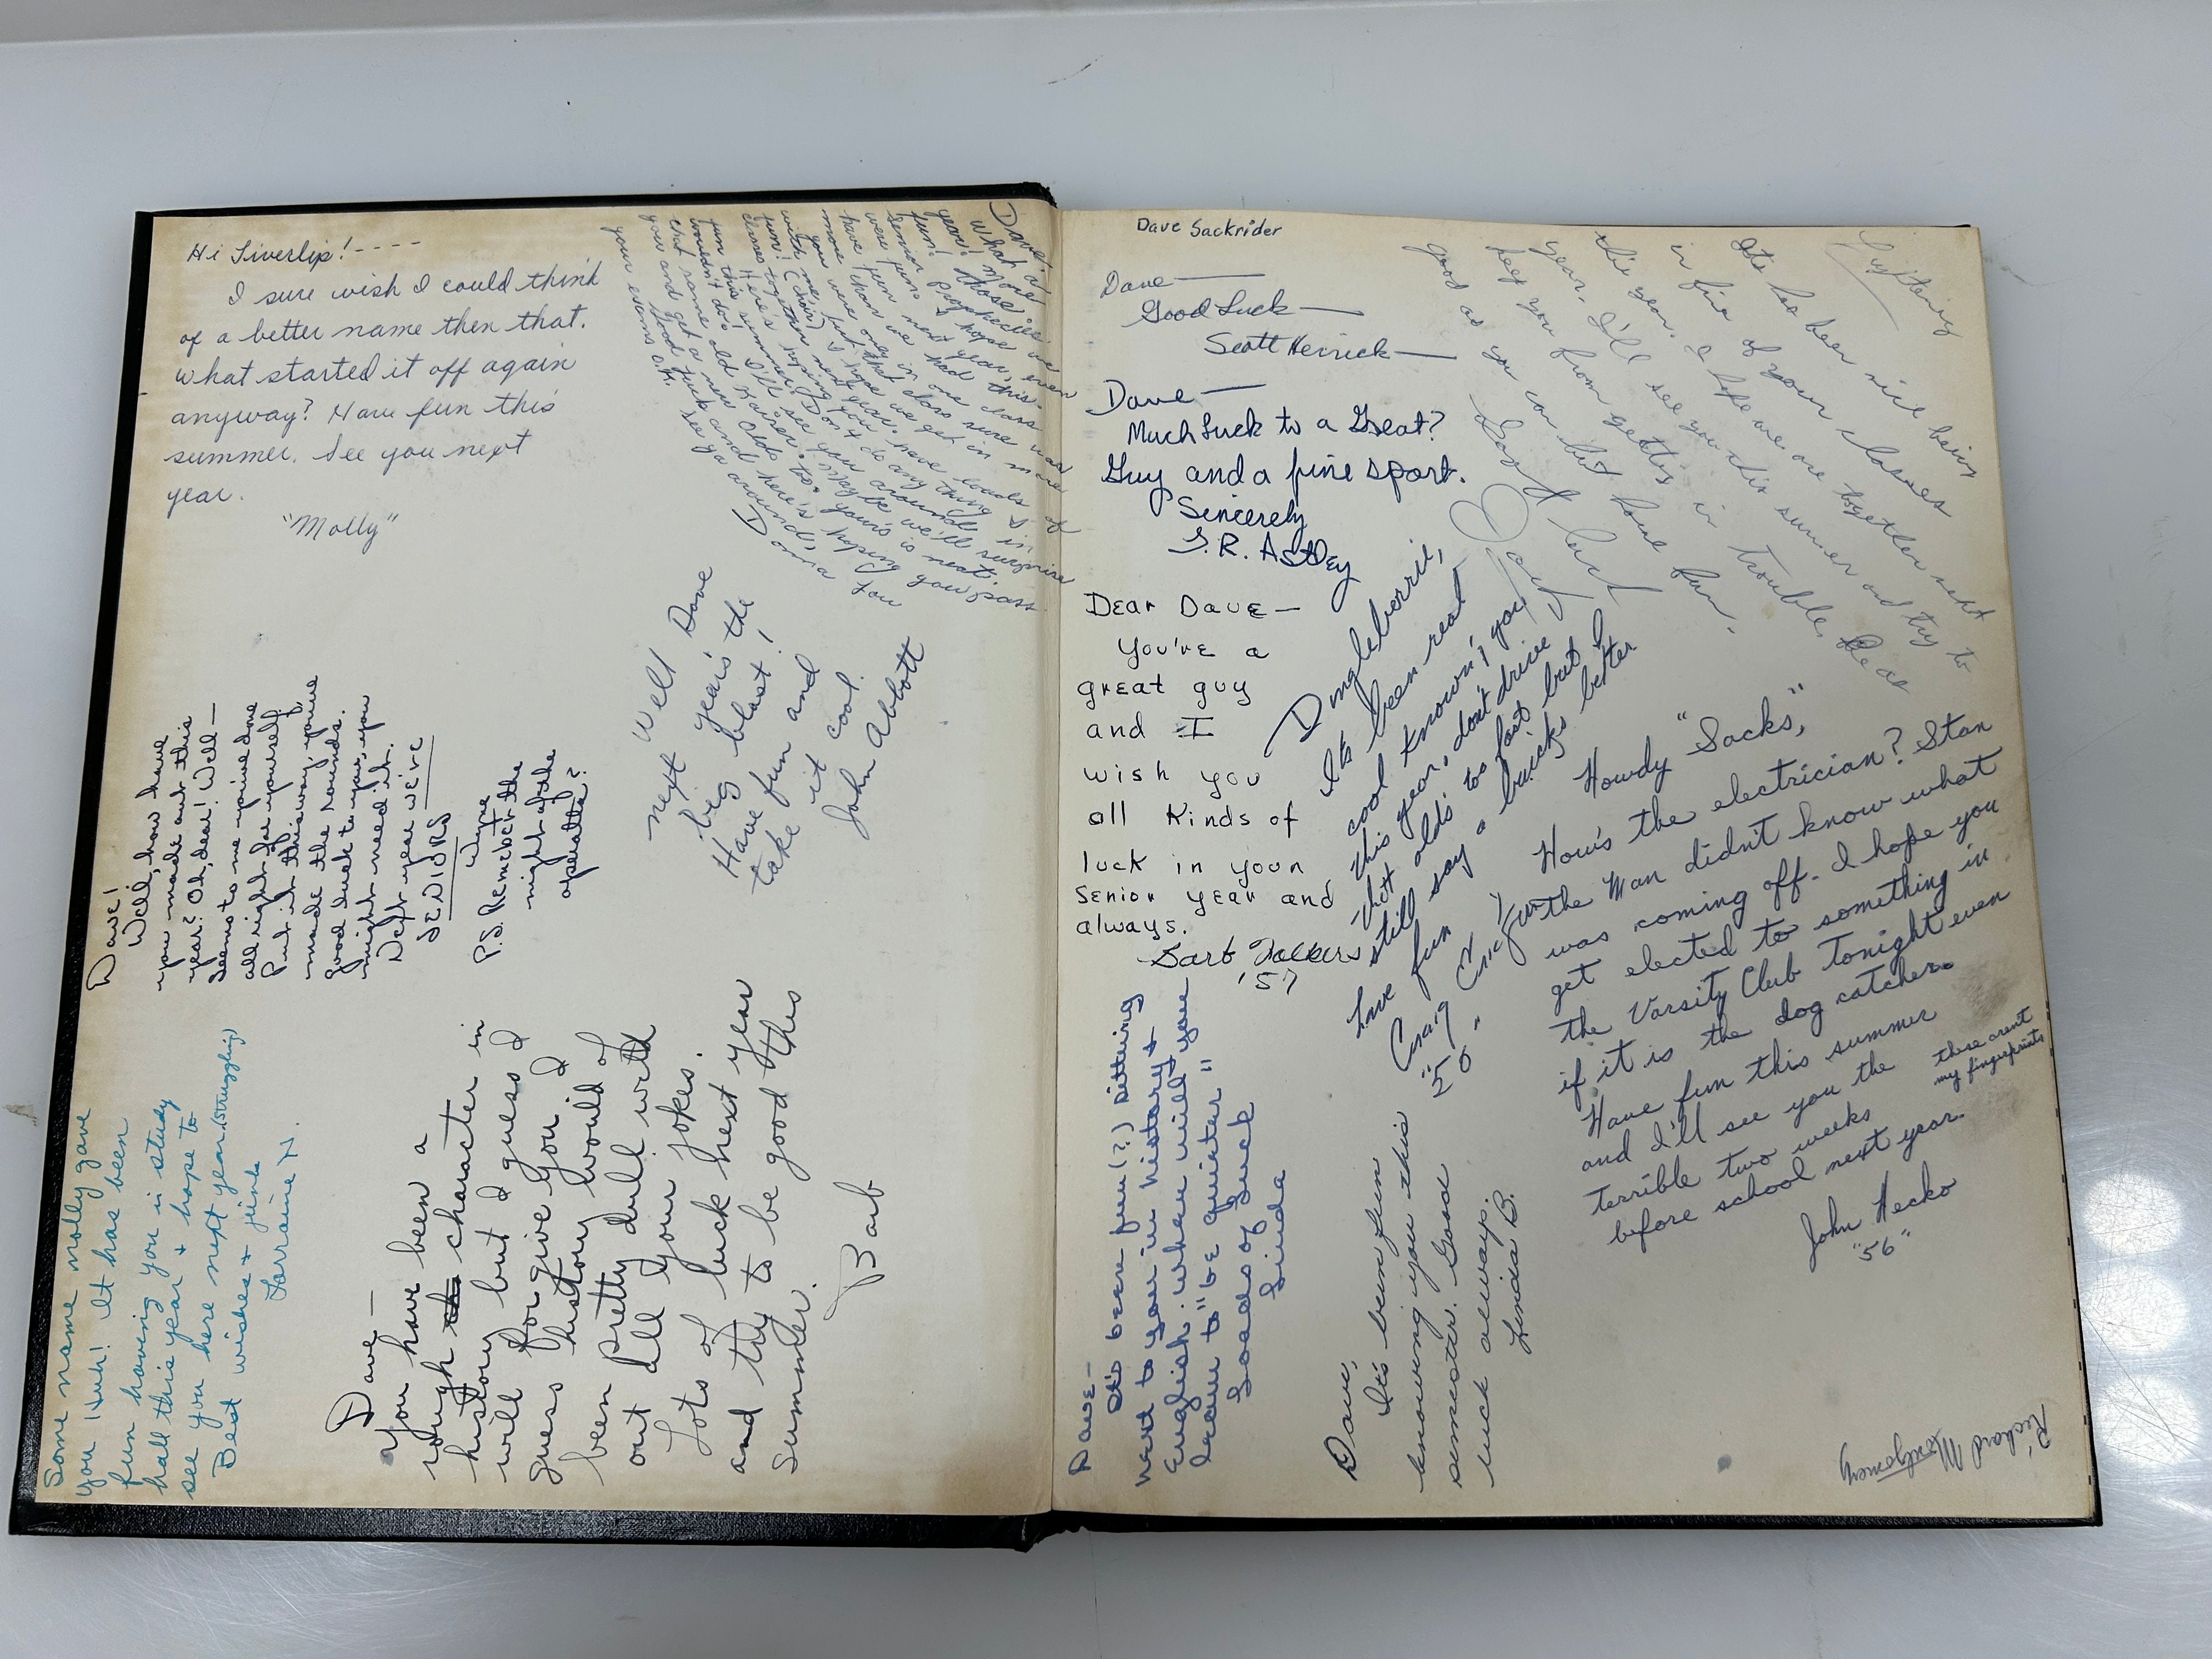 Hi Liverlip! - - - -
I sure wish I could think
of a better name then that.
what started it off again
anyway? Have fun this
summer. See you next
year.
"Molly"
Dave,
What a
year! More
fun! Those
Senior Prophecies
were fun.
have fun next year,
more than we had this.
you were only in one class
with me, but that class sure was
fun! (choir) I hope we get in more
classes together next year. have loads of
fun this summer. Don't do anything I
wouldn't do! I'll see you around in
that same old Kaiser. Maybe we'll surprise
you and get a new Olds to. yours is neat.
Good luck and here's hoping you pass
your exams O.K. See ya around,
Donna
Well Dave
next year's the
big blast!
Have fun and
take it cool.
John Abbott
Dave!
Well, how have
you made out this
year? Oh, dear! Well —
Seems to me you've done
all right for yourself.
Put it this way, you've
made the rounds.
Good luck to you, you
might need it.
Next year we're
SENIORS
P.S. Remember the
night of the
operatta?
Some name Molly gave
you Huh! It has been
fun having you in study
hall this year & hope to
see you here next year. (struggling)
Best wishes & junk
Lorraine N.
Dave —
You have been a
rough character in
history but I guess I
will forgive you. I
guess history would of
been pretty dull with
out all your jokes.
Lots of luck next year
and try to be good this
Summer.
Barb
Dave Sackrider
Dave —
Good Luck —
Scott Herrick —
Dave —
Much Luck to a Great?
Guy and a fine sport.
Sincerely
S. R. Astley
Dear Dave —
You're a
great guy
and I
wish you
all kinds of
luck in your
Senior year and
always.
Barb
'57
It's been nice being
in five of your classes
this year. I hope we are together next
year. I'll see you this summer and try to
keep you from getting in trouble. Be as
good as you can but have fun.
Good luck
Doug
Dingleberrie,
It's been real
cool known'g you
this year, don't drive
that olds to fast but I
still say a buicks better
have fun
Craig
"56"
Howdy "Sacks,"
How's the electrician? Stan
the Man didn't know what
was coming off. I hope you
get elected to something in
the Varsity Club tonight even
if it is the dog catcher.
Have fun this summer
and I'll see you the
terrible two weeks
before school next year.
John Hecko
"56"
these arent
my fingerprints
Dave —
It's been fun(?) sitting
next to you in history &
English. When will you
learn to "be quieter"
Loads of Luck
Linda
Dave,
It's been fun
knowing you this
semester. Good
luck always.
Linda B.
Richard Montgomery